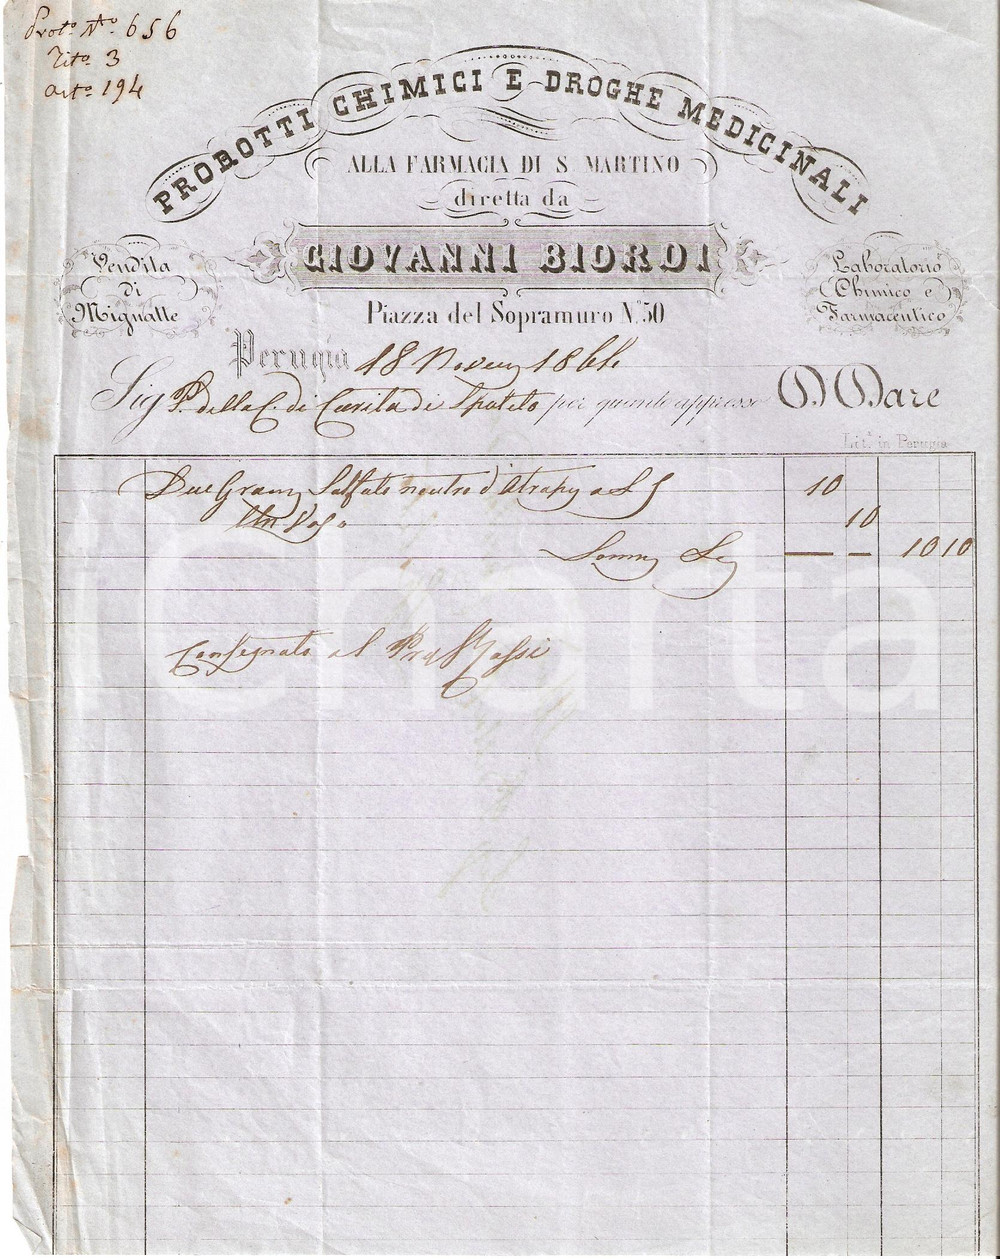 Proto. No. 656
Tito. 3
Arto. 194
PRODOTTI CHIMICI E DROGHE MEDICINALI
ALLA FARMACIA DI S. MARTINO
diretta da
GIOVANNI BIORDI
Vendita
di
Mignatte
Laboratorio
Chimico e
Farmaceutico
Piazza del Sopramuro N.º 50
Perugia 18 1864
Sig P. della C. di Carità di Spoleto per quanto appresso Dare
Lit.ª in Perugia
Due Gram Solfato neutro d' a L 5 10
Un Vaso 10
Somm 10 10
Consegnato al Rossi
Charta